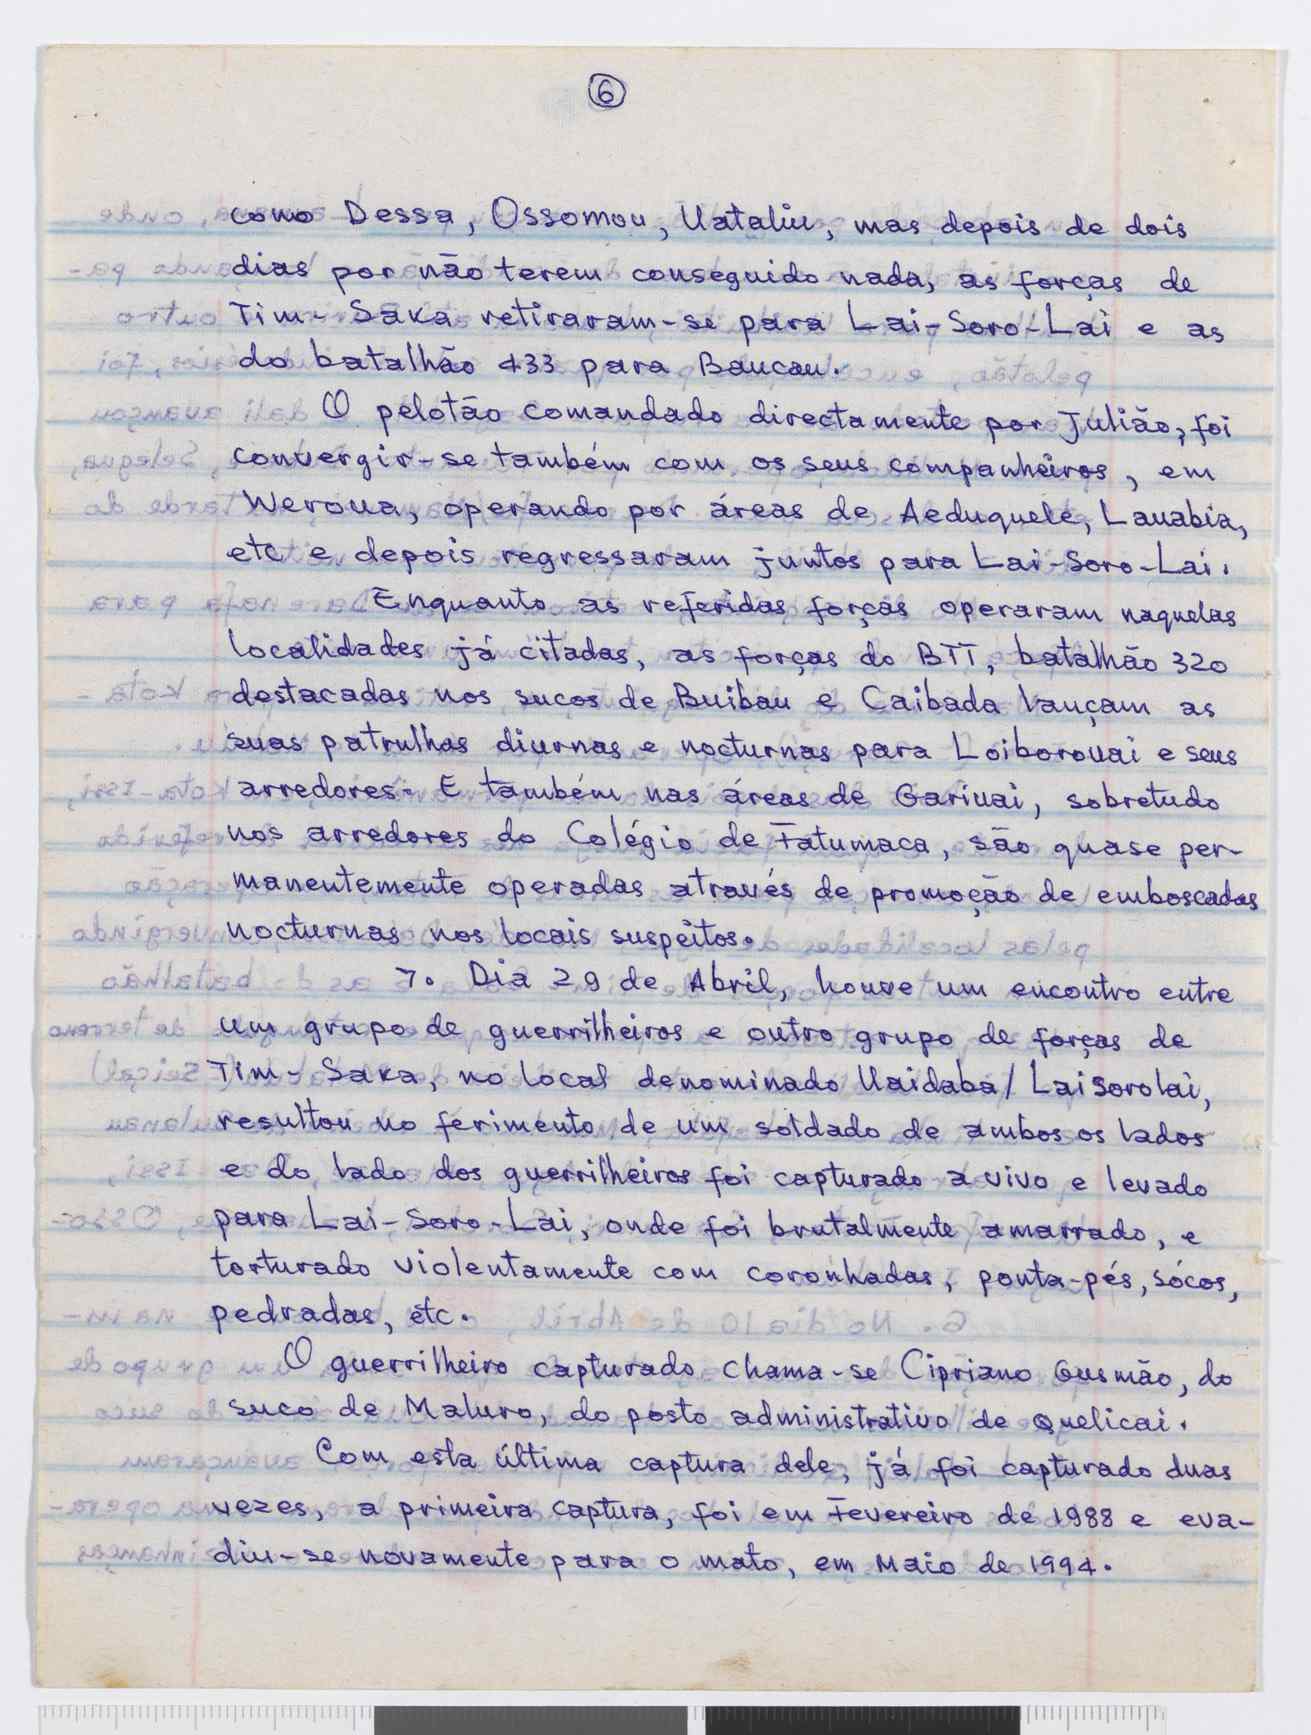 6
como Dessa, Ossomou, Uataliu, mas depois de dois
dias por não terem conseguido nada, as forças de
Tim - Saka retiraram-se para Lai-Soro-Lai e as
do batalhão 433 para Baucau.
O pelotão comandado directamente por Julião, foi
convergir-se também com os seus companheiros, em
Weroua, operando por áreas de Aeduquele, Lauabia,
etc e depois regressaram juntos para Lai-Soro-Lai.
Enquanto as referidas forças operaram naquelas
localidades já citadas, as forças do BTT, batalhão 320
destacadas nos sucos de Buibau e Caibada lançam as
suas patrulhas diurnas e nocturnas para Loiborouai e seus
arredores. E também nas áreas de Gariuai, sobretudo
nos arredores do Colégio de Fatumaca, são quase per-
manentemente operadas através de promoção de emboscadas
nocturnas nos locais suspeitos.
7. Dia 29 de Abril, houve um encontro entre
um grupo de guerrilheiros e outro grupo de forças de
Tim - Saka, no local denominado Uaidaba/Laisorolai,
resultou no ferimento de um soldado de ambos os lados
e do lado dos guerrilheiros foi capturado a vivo e levado
para Lai-Soro-Lai, onde foi brutalmente amarrado, e
torturado violentamente com coronhadas, ponta-pés, sócos,
pedradas, etc.
O guerrilheiro capturado chama-se Cipriano Gusmão, do
suco de Maluro, do posto administrativo de Quelicai.
Com esta última captura dele, já foi capturado duas
vezes, a primeira captura, foi em Fevereiro de 1988 e eva-
diu-se novamente para o mato, em Maio de 1994.